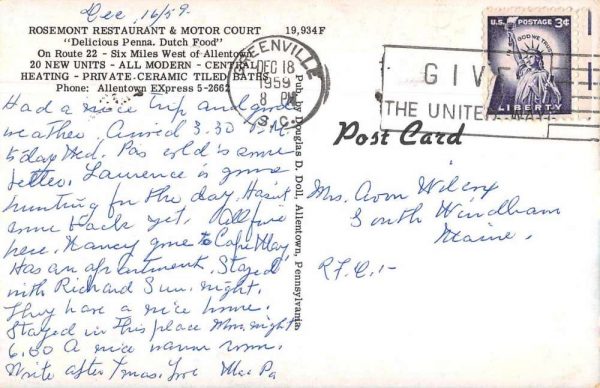 Dec, 16/59.
ROSEMONT RESTAURANT & MOTOR COURT 19,934F
"Delicious Penna. Dutch Food"
On Route 22 - Six Miles West of Allentown
20 NEW UNITS - ALL MODERN - CENTRAL
HEATING - PRIVATE CERAMIC TILED BATHS
Phone: Allentown EXpress 5-2662
Had a nice trip and good
weather. Arrived 3.30 P.M.
today Wed. Pas cold is some
better. Laurence is gone
hunting for the day. Hasn't
come back yet. All fine
here. Nancy gone to Cape May,
Has an apartment. Stayed
with Richard Sun. night.
They have a nice home.
Stayed in this place Mon. night
6.00 A nice warm room.
Write after Xmas. Love Ma & Pa
Pub. by Douglas D. Doll, Allentown, Pennsylvania
GREENVILLE
DEC 18
8 PM
1959
S.C.
GIVE
THE UNITED WAY
U.S. POSTAGE 3¢
IN GOD WE TRUST
LIBERTY
Post Card
Mrs. Avon Wilcox
South Windham
Maine.
R.F.D. 1-